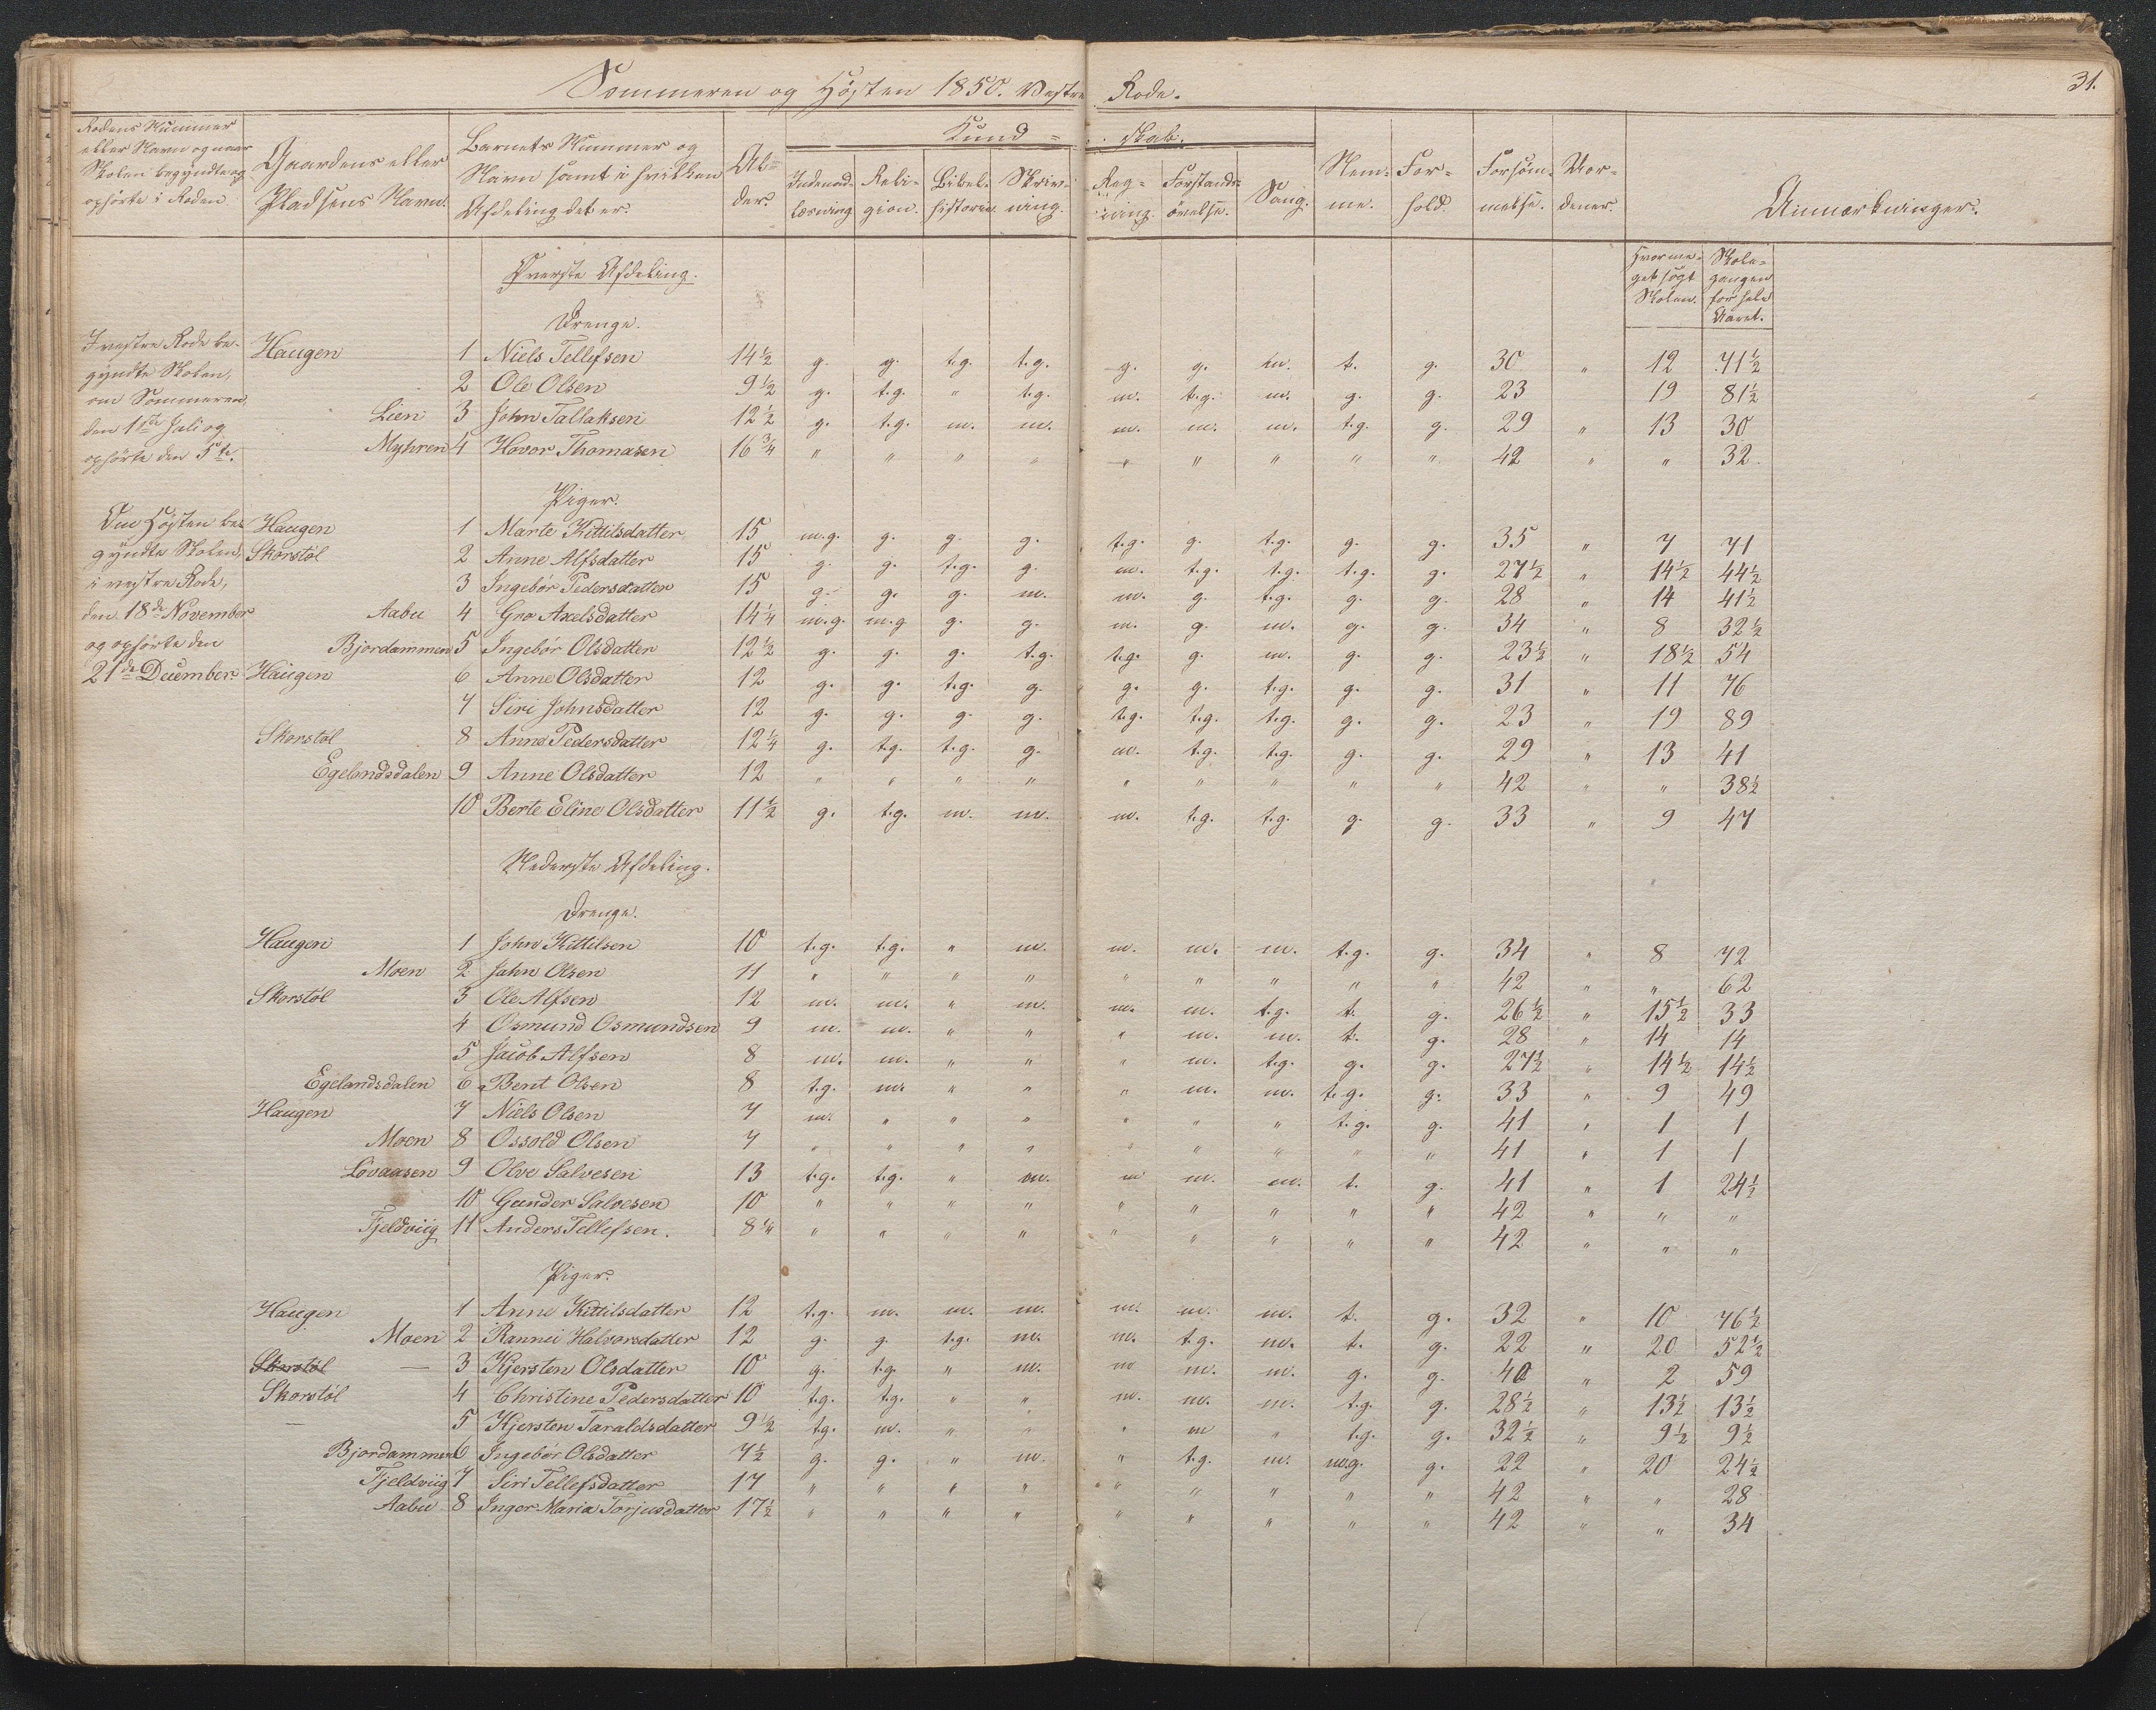 31.
Sommeren og Høsten 1850. Vestre Rode.
Rodens Nummer eller Navn og naar Skolen begyndte og ophørte i Roden. | Gaardens eller Pladsens Navn. | Barnets Nummer og Navn samt i hvilken Afdeling det er. | Alder. | Kundskab. | Nemme. | Forhold. | Forsømmelse. | Anmærkninger.
Indenadlæsning | Religion. | Bibelhistorie. | Skrivning. | Regning. | Forstandsøvelse. | Sang.
Hvormeget søgt Skolen. | Skolegangen for hele Aaret.
Øverste Afdeling.
Drenge.
I vestre Rode begyndte Skolen, om Sommeren, den 1ste Juli og ophørte den 5te.
Haugen 1 Niels Tellefsen 14½ g. g. t.g. t.g. g. g. m. t. g. 30 " 12 71½
2 Ole Olsen 9½ g. t.g. " t.g. m. t.g. m. g. g. 23 19 81½
Lien 3 John Tallaksen 12½ g. t.g. m. m. m. m. m. t.g. g. 29 " 13 30
Myhren 4 Hovor Thomasen 16¾ " " " " " " " " " 42 " " 32.
Piger.
Om Høsten begyndte Skolen, i vestre Rode, den 18de November og ophørte den 21de December.
Haugen 1 Marte Kittilsdatter 15 m.g. g. g. g. t.g. g. t.g. g. g. 35 " 7 71
Skorstøl 2 Anne Alfsdatter 15 g. g. t.g. g. m. t.g. t.g. t.g. g. 27½ " 14½ 44½
3 Ingebor Pedersdatter 15 g. g. g. m. m. g. t.g. g. g. 28 " 14 41½
Aabu 4 Gro Axelsdatter 14¼ m.g. m.g g. g. m. g. m. g. g. 34 " 8 32½
Bjordammen 5 Ingebor Olsdatter 12½ g. g. g. t.g. t.g. g. m. g. g. 23½ " 18½ 54
Haugen 6 Anne Olsdatter 12 g. g. t.g. g. g. g. t.g. g. g. 31 " 11 76
7 Siri Johnsdatter 12 g. g. g. g. t.g. t.g. t.g. g. g. 23 " 19 89
Skorstøl 8 Anne Pedersdatter 12¼ g. t.g. t.g. g. m. t.g. t.g. g. g. 29 " 13 41
Egelandsdalen 9 Anne Olsdatter 12 " " " " " " " " " 42 " " 38½
10 Berte Eline Olsdatter 11½ g. t.g. m. m. m. t.g. t.g. g. g. 33 " 9 47
Nederste Afdeling.
Drenge.
Haugen 1 John Kittilsen 10 t.g. t.g. " m. m. m. m. t.g. g. 34 " 8 72
Moen 2 John Olsen 11 " " " " " " " " " 42 " " 62
Skorstøl 3 Ole Alfsen 12 m. m. " m. m. m. t.g. t. g. 26½ " 15½ 33
4 Osmund Osmundsen 9 m. m. " " " m. m. t. g. 28 " 14 14
5 Jacob Alfsen 8 m. m. " " " m. t.g. g. g. 27½ " 14½ 14½
Egelandsdalen 6 Bent Olsen 8 t.g. m. " " " m. m. t.g. g. 33 " 9 49
Haugen 7 Niels Olsen 7 m. " " " " " " t.g. g. 41 " 1 1
Moen 8 Ossold Olsen 7 " " " " " " " " " 41 " 1 1
Løvaasen 9 Olve Salvesen 13 t.g. t.g. " m. m m. m. t. g. 41 " 1 24½
10 Gunder Salvesen 10 " " " " " " " " " 42 " " "
Fjeldviig 11 Anders Tellefsen. 8¼ " " " " " " " " " 42 " " "
Piger.
Haugen 1 Anne Kittilsdatter 12 t.g. m. m. m. m. m. m. t. g. 32 " 10 76½
Moen 2 Rannei Halvorsdatter 12 g. g. t.g. m. m. t.g. m. t. g. 22 " 20 52½
Skorstøl — 3 Kjersten Olsdatter 10 g. t.g. " m. m m. m. g. g. 40 " 2 59
Skorstøl 4 Christine Pedersdatter 10 t.g. t.g. " " m. m. m. t.g. g. 28½ " 13½ 13½
— 5 Kjersten Taraldsdatter 9½ t.g. m. " " " m " t.g. g. 32½ " 9½ 9½
Bjordammen 6 Ingebor Olsdatter 7½ g. g. " m. " t.g. m. m.g. g. 22 " 20 24½
Fjeldviig 7 Siri Tellefsdatter 17 " " " " " " " " " 42 " " 28
Aabu 8 Inger Maria Torjusdatter 17½ " " " " " " " " " 42 " " 34